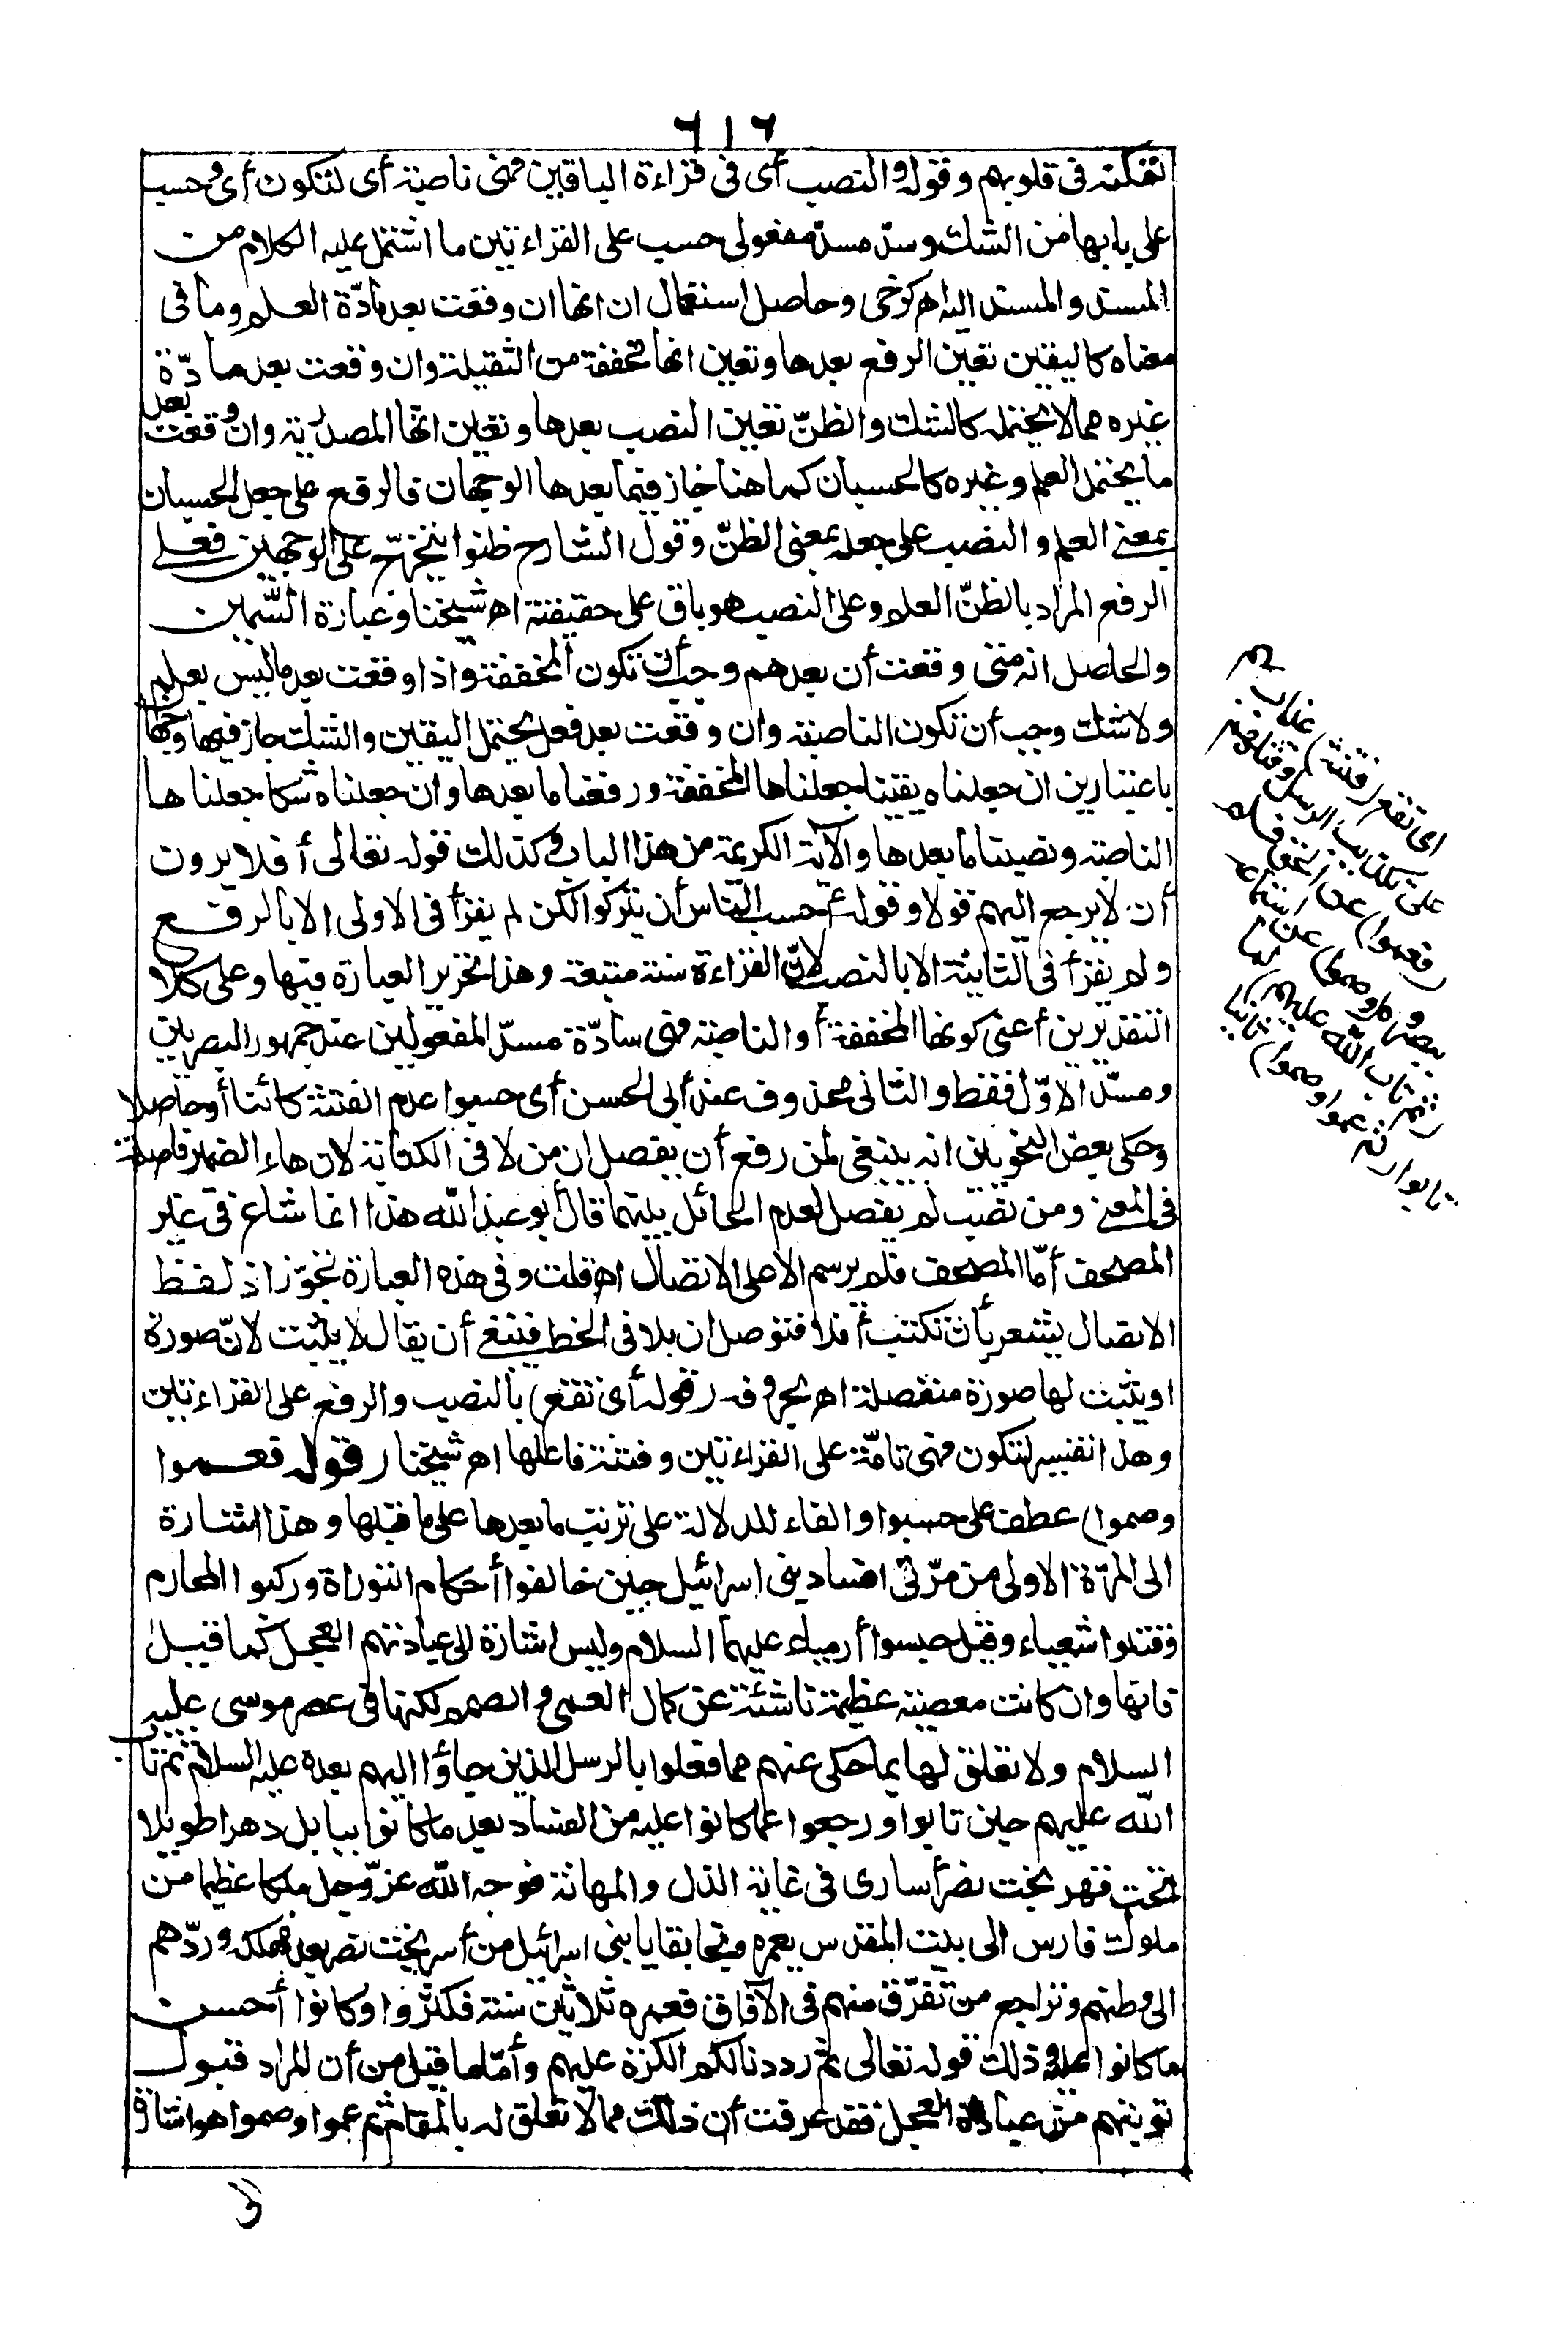 ٦١٦
لتمكنه في قلوبهم وقوله والنصب أي في قراءة الباقين فهي ناصبة أي لتكون أي وحسب
على بابها من الشك وسد مسد مفعولى حسب على القراءتين ما اشتمل عليه الكلام من
المسند والمسند اليه اه كرخى وحاصل استعمال ان انها ان وقعت بعد مادّة العلم وما فى
معناه كاليقين تعين الرفع بعدها وتعين انها مخففة من الثقيلة وان وقعت بعد مادّة
غيره مما لا يحتمله كالشك والظنّ تعين النصب بعدها وتعين انها المصدرية وان وقعت بعد
ما يحتمل العلم وغيره كالحسبان كما هنا جاز فيما بعدها الوجهان فالرفع على جعل الحسبان
بمعنى العلم والنصب على جعله بمعنى الظنّ وقول الشارح ظنوا يتخرّج على الوجهين فعلى
الرفع المراد بالظنّ العلم وعلى النصب هو باق على حقيقته اه شيخنا وعبارة السّمين
والحاصل انه متى وقعت أن بعدهم وجب أن تكون المخففة واذا وقعت بعد ما ليس بعلم
ولا شك وجب أن تكون الناصبة وان وقعت بعد فعل يحتمل اليقين والشك جاز فيها وجهان
باعتبارين ان جعلناه يقينا جعلناها المخففة ورفعنا ما بعدها وان جعلناه شكا جعلناها
الناصبة ونصبنا ما بعدها والآية الكريمة من هذا الباب وكذلك قوله تعالى أفلا يرون
أن لا يرجع اليهم قولا وقوله أحسب النّاس أن يتركوا لكن لم يقرأ فى الاولى الا بالرفع
ولم يقرأ فى الثانية الا بالنصب لانّ القراءة سنة متبعة وهذا تحرير العبارة فيها وعلى كلا
التقديرين أعنى كونها المخففة أو الناصبة فهى سادّة مسدّ المفعولين عند جمهور البصريين
ومسدّ الاوّل فقط والثانى محذوف عند أبى الحسن أى حسبوا عدم الفتنة كائنا أو حاصلا
وحكى بعض النحويين انه ينبغى لمن رفع أن يفصل ان من لا فى الكتابة لان هاء الضمير فاصلة
فى المعنى ومن نصب لم يفصل لعدم الحائل بينهما قال أبو عبد الله هذا انما شاع فى غير
المصحف أمّا المصحف فلم يرسم الا على الاتصال اه قلت وفى هذه العبارة تجوّز اذ لفظ
الاتصال يشعر بأن تكتب أفلا فتوصل ان بلا فى الخط فينبغى أن يقال لا يثبت لانّ صورة
او يثبت لها صورة منفصلة اه بحروفه (قوله أى تقع) بالنصب والرفع على القراءتين
وهذا تفسير لتكون فهى تامّة على القراءتين وفتنة فاعلها اه شيخنا (قوله فعموا
وصموا) عطف على حسبوا والفاء للدلالة على ترتيب ما بعدها على ما قبلها وهذا اشارة
الى المرّة الاولى من مرّتى افساد بنى اسرائيل حين خالفوا أحكام التوراة وركبوا المحارم
فقتلوا شعياء وقيل حبسوا أرمياء عليهما السلام وليس اشارة الى عبادتهم العجل كما قيل
فانها وان كانت معصية عظيمة ناشئة عن كمال العمى والصمم لكنها فى عصر موسى عليه
السلام ولا تعلق لها بما حكى عنهم مما فعلوا بالرسل الذين جاؤا اليهم بعده عليه السلام ثم تاب
الله عليهم حين تابوا ورجعوا عما كانوا عليه من الفساد بعد ما كانوا ببابل دهرا طويلا
تحت قهر بخت نصر أسارى فى غاية الذل والمهانة فوجه الله عزّ وجل ملكا عظيما من
ملوك فارس الى بيت المقدس يعمره ونجا بقايا بنى اسرائيل من أسر بخت نصر بعد مهلكه وردّهم
الى وطنهم وتراجع من تفرّق منهم فى الآفاق فعمره ثلاثين سنة فكثروا وكانوا أحسن
ما كانوا عليه وذلك قوله تعالى ثم رددنا لكم الكرّة عليهم وأمّا ما قيل من أن المراد قبول
توبتهم من عبادة العجل فقد عرفت أن ذلك مما لا تعلق له بالمقام ثم عموا وصموا هو اشارة
اى تقع (فتنة) عذاب بهم
على تكذيب الرسل وقتلهم
(فعموا) عن الحق فلم
يبصروه (وصموا) عن استماعه
(ثم تاب الله عليهم) لما
تابوا (ثم عموا وصموا) ثانيا